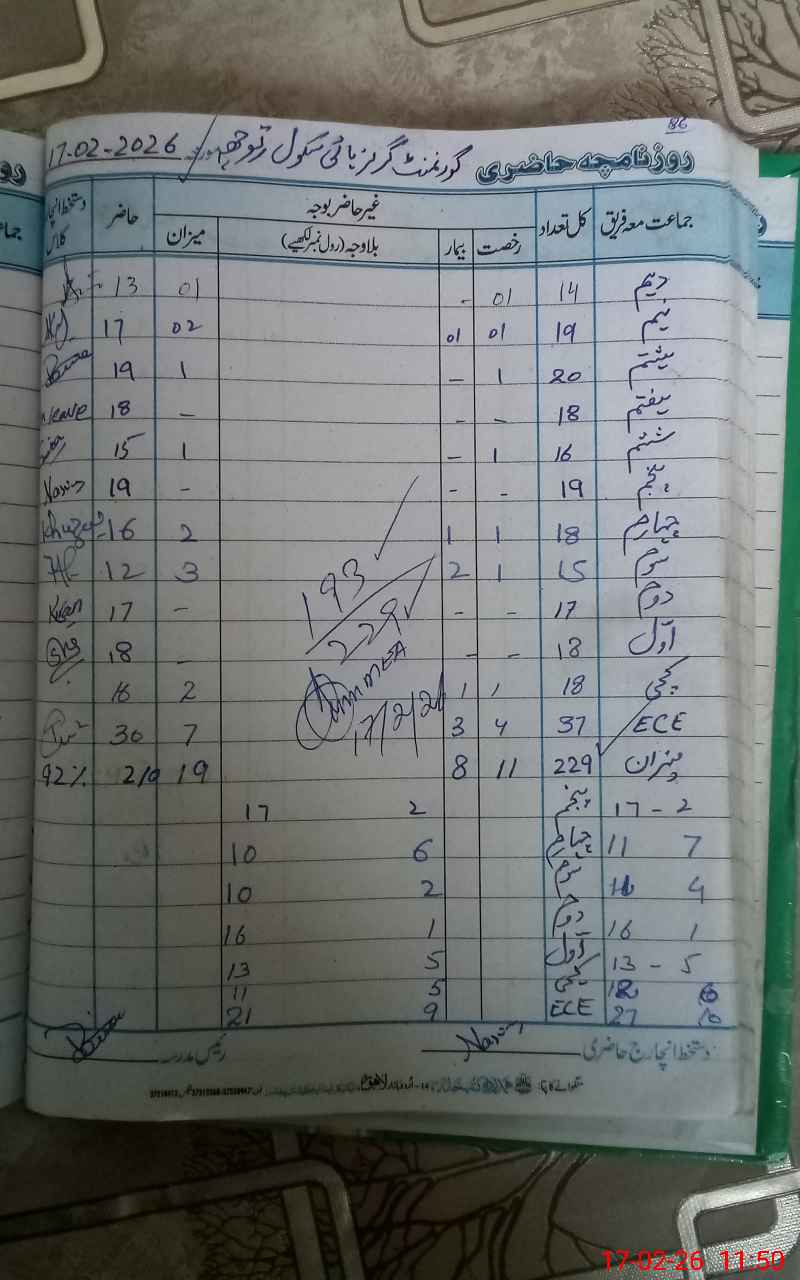 86
روزنامچہ حاضری گورنمنٹ گرلز ہائی سکول رتوچھہ مورخہ 17-02-2026
جماعت معہ فریق کل تعداد غیر حاضر بوجہ حاضر دستخط انچارج کلاس
رخصت بیمار بلاوجہ (رول نمبر لکھیے) میزان
دہم 14 01 - 01 13
نہم 19 01 01 02 17
ہشتم 20 1 - 1 19
ہفتم 18 - - - 18
ششم 16 1 - 1 15
پنجم 19 - - - 19
چہارم 18 1 1 2 16
سوم 15 1 2 3 12
دوم 17 - - - 17
اول 18 - - - 18
کچی 18 1 1 2 16
ECE 37 4 3 7 30
میزان 229 11 8 19 210 92%
193
229
17/2/26
17 - 2 پنجم 2 17
11 7 چہارم 6 10
4 سوم 2 10
16 1 دوم 1 16
13 - 5 اول 5 13
12 6 کچی 5 11
27 10 ECE 9 21
دستخط انچارج حاضری Nasim رئیس مدرسہ
17-02-26 11:50